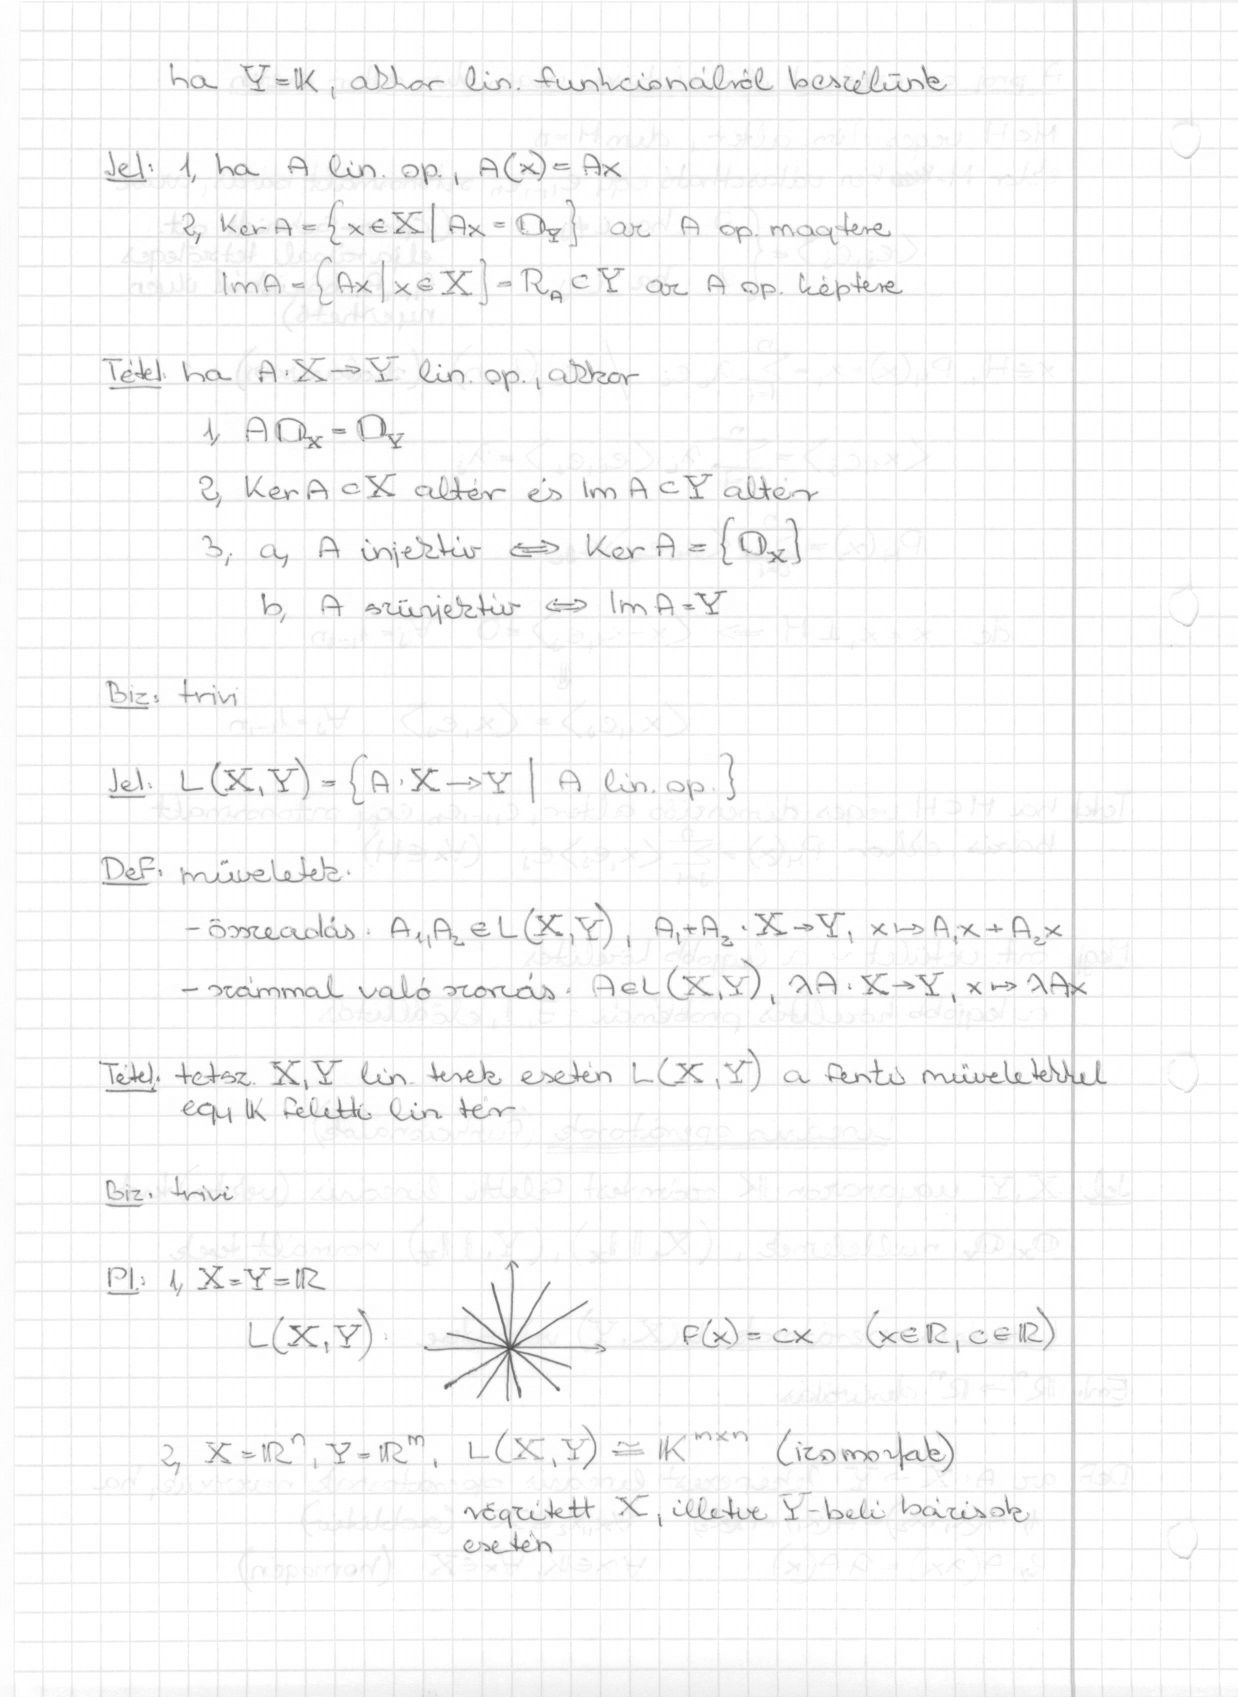 ha Y=K, akkor lin. funkcionálról beszélünk
Jel: 1, ha A lin. op., A(x)=Ax
2, Ker A = {x∈X | Ax = 0_Y} az A op. magtere
Im A = {Ax | x∈X} = R_A ⊂ Y az A op. képtere
Tétel: ha A: X→Y lin. op., akkor
1, A0_X = 0_Y
2, Ker A ⊂ X altér és Im A ⊂ Y altér
3, a, A injektív ⇔ Ker A = {0_X}
b, A szürjektív ⇔ Im A = Y
Biz: trivi
Jel: L(X,Y) = {A: X→Y | A lin. op.}
Def: műveletek:
- összeadás: A₁,A₂ ∈ L(X,Y), A₁+A₂: X→Y, x↦A₁x + A₂x
- számmal való szorzás: A∈L(X,Y), λA: X→Y, x↦λAx
Tétel: tetsz. X,Y lin. terek esetén L(X,Y) a fenti műveletekkel
egy K feletti lin tér
Biz: trivi
Pl: 1, X=Y=ℝ
L(X,Y): F(x) = cx (x∈ℝ, c∈ℝ)
2, X=ℝⁿ, Y=ℝᵐ, L(X,Y) ≅ K^{m×n} (izomorfak)
rögzített X, illetve Y-beli bázisok
esetén